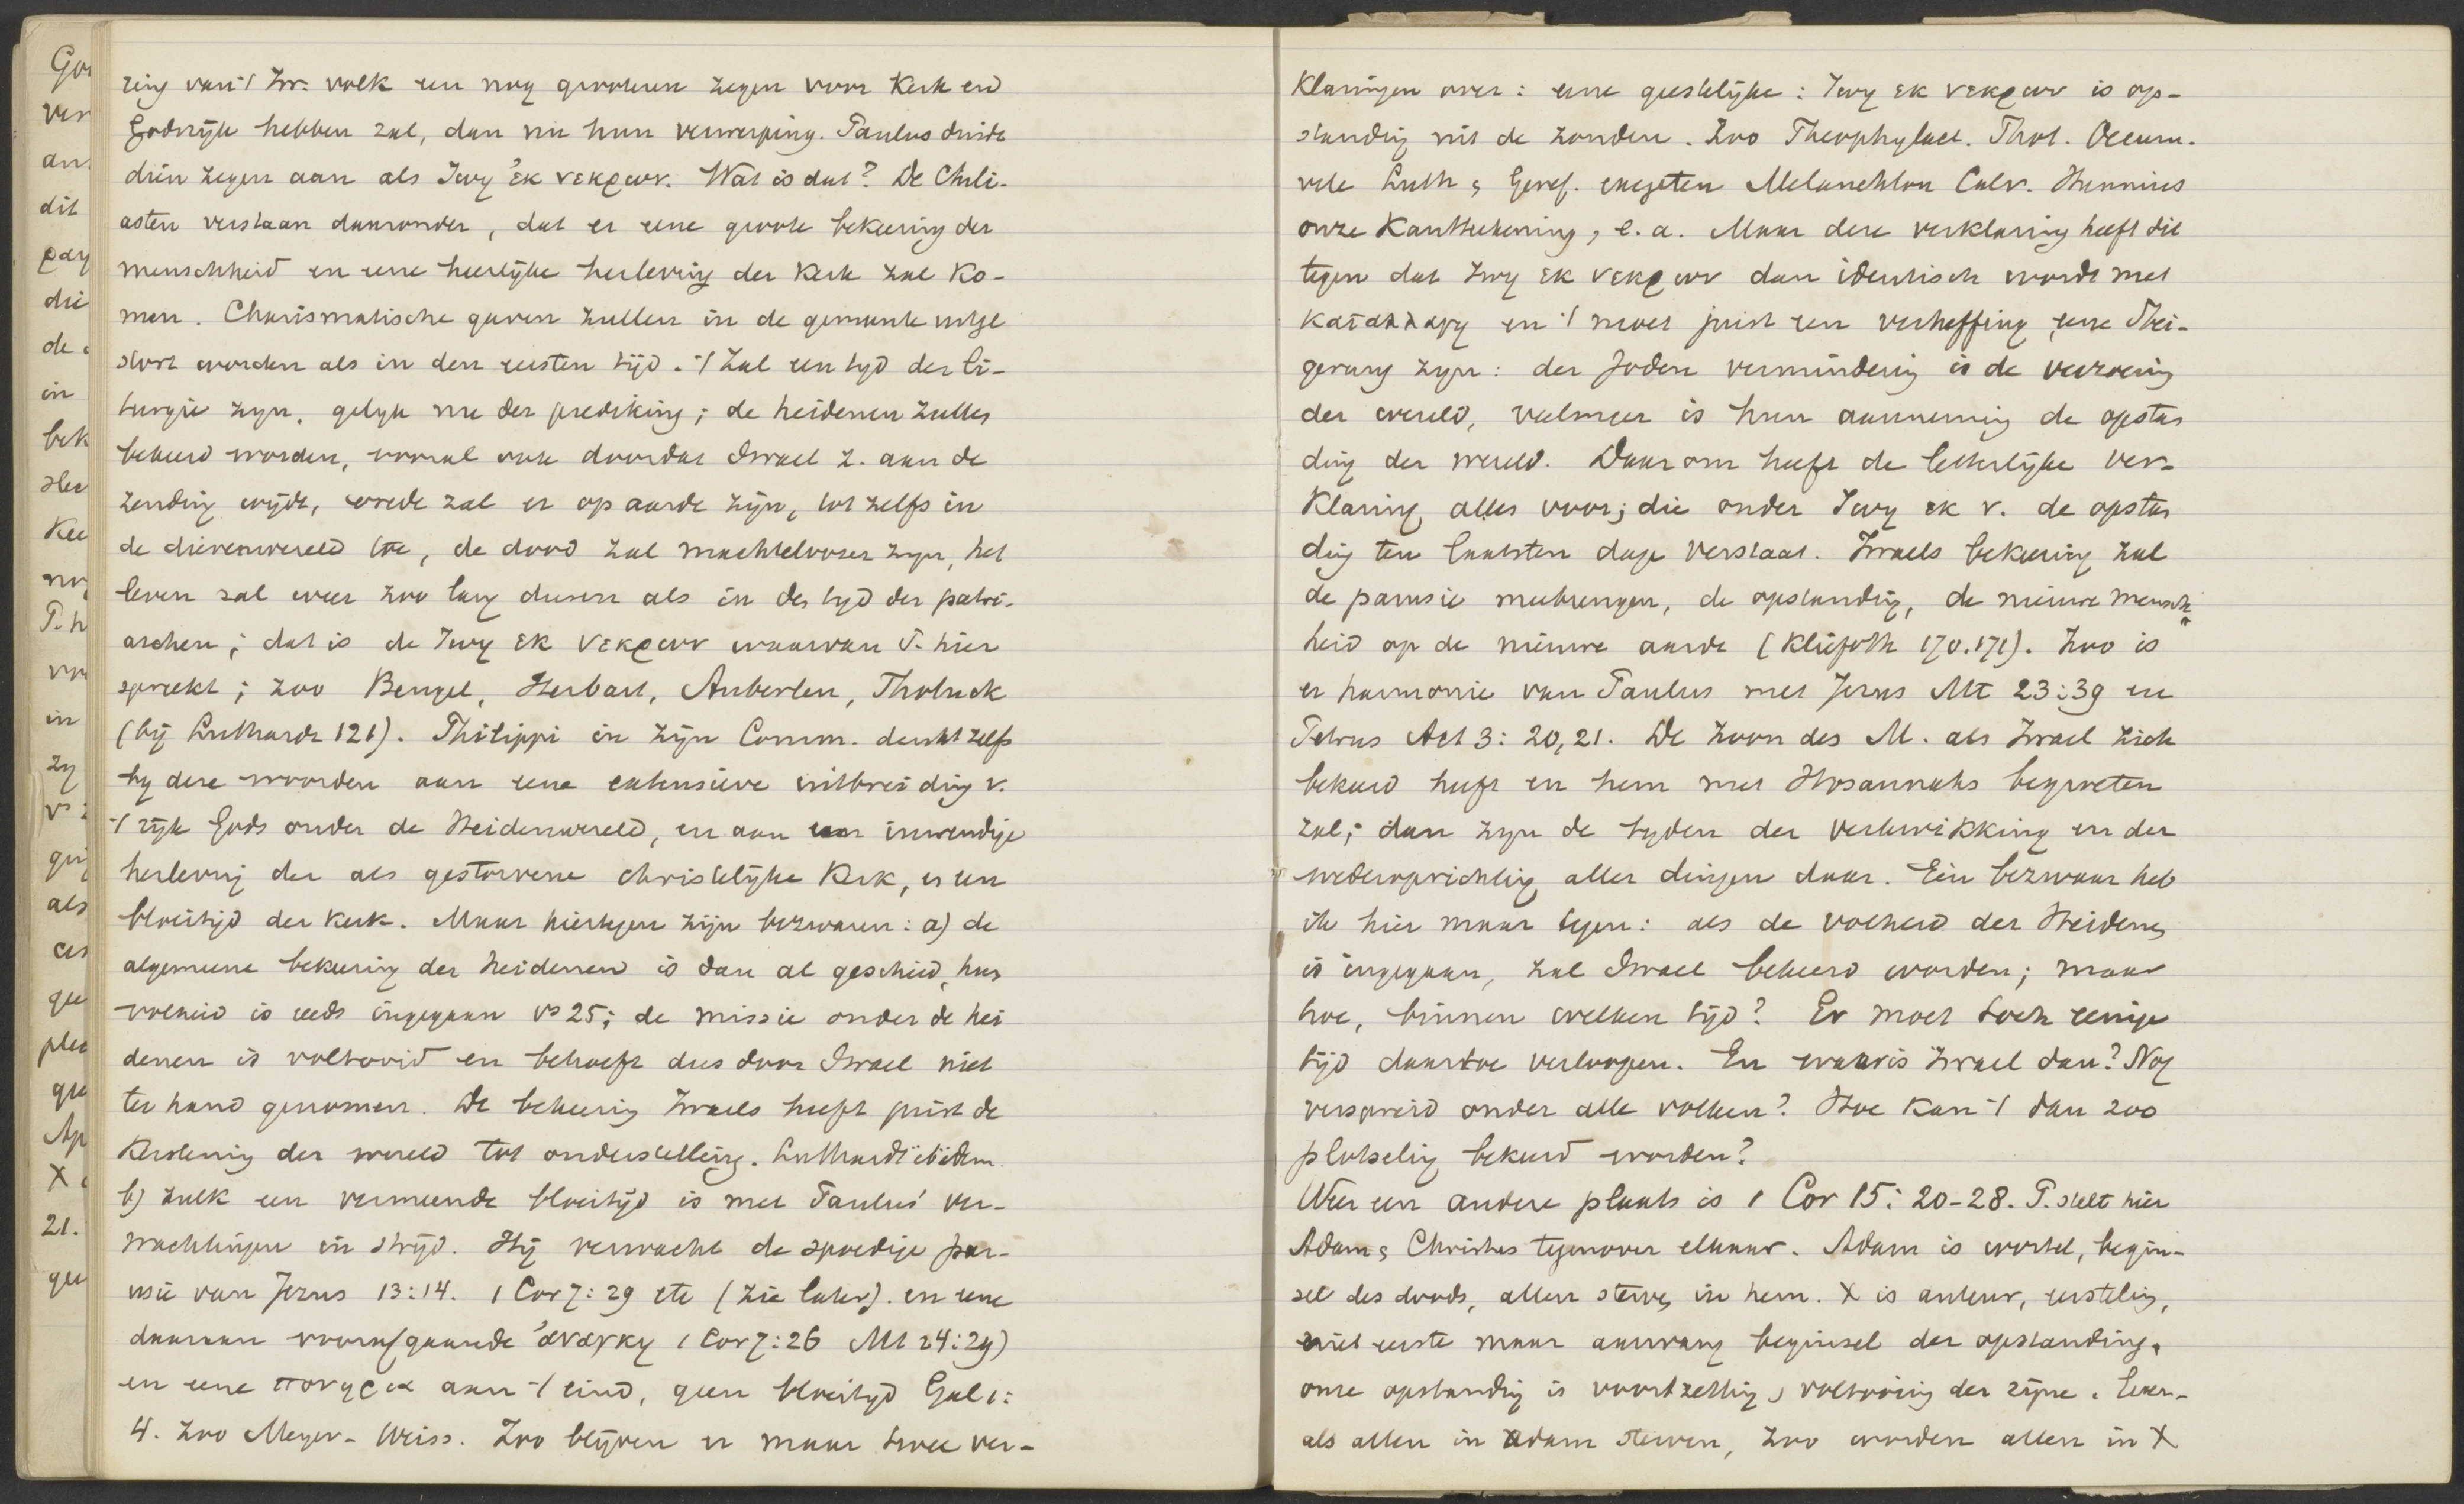 ring van 't Isr. volk een nog grooteren zegen voor Kerk en
Godsrijk hebben zal, dan nu hun verwerping. Paulus duidt
dien zegen aan als ζωη ἐκ νεκρων. Wat is dat? De Chili-
asten verstaan daaronder, dat er eene groote bekeering der
menschheid en eene heerlijke herleving der Kerk zal ko-
men. Charismatische gaven zullen in de gemeente uitge
stort worden als in den eersten tijd. 't Zal een tyd der li-
turgie zyn, gelyk nu der prediking; de heidenen zullen
bekeerd worden, vooral ook doordat Israel z. aan de
zending wijdt, vrede zal er op aarde zijn, tot zelfs in
de dierenwereld toe, de dood zal machteloozer zyn, het
leven zal weer zoo lang duren als in den tyd der patri-
archen; dat is de ζωη εκ νεκρων waarvan P. hier
spreekt; zoo Bengel, Herbart, Auberlen, Tholuck
(bij Luthardt 121). Philippi in zijn Comm. denkt zelfs
by deze woorden aan eene extensieve uitbreiding v.
't rijk Gods onder de Heidenwereld, en aan een inwendige
herleving der als gestorvene christelijke Kerk, en een
bloeitijd der Kerk. Maar hiertegen zijn bezwaren: a) de
algemeene bekeering der Heidenen is dan al geschied, hun
volheid is reeds ingegaan vs 25; de missie onder de hei
denen is voltooid en behoeft dus door Israel niet
ter hand genomen. De bekeering Israels heeft juist de
Kerstening der wereld tot onderstelling. Luthardt ibidem.
b) zulk een vermeende bloeitijd is met Paulus' ver-
wachtingen in strijd. Hij verwacht de spoedige par-
usie van Jezus 13:14. 1 Cor 7:29 etc (zie later). en eene
daaraan voorafgaande ἀναγκη 1 Cor 7:26 Mt 24:29)
en eene πονηρια aan 't eind, geen bloeitijd Gal 1:
4. Zoo Meyer-Weiss. Zoo blijven er maar twee ver-
Klaringen over: eene geestelijke: ζωη εκ νεκρων is op-
standing uit de zonden. Zoo Theophylact. Phot. Oecum.
vele Luth & Geref. exegeten Melanchton Calv. Hunnius
onze Kantteekening, e. a. Maar deze verklaring heeft dit
tegen dat ζωη εκ νεκρων dan identisch wordt met
καταλλαγη en 't moet juist een verheffing eene Stei-
gerung zyn: der Joden vermindering is de verzoening
der wereld, veelmeer is hun aanneming de opstan
ding der wereld. Daarom heeft de letterlijke ver-
Klaring alles voor; die onder ζωη εκ ν. de opstan
ding ten laatsten dage verstaat. Israels bekeering zal
de parusie meebrengen, de opstanding, de nieuwe mensch
heid op de nieuwe aarde (Kliefoth 170.171). Zoo is
er harmonie van Paulus met Jezus Mt 23:39 en
Petrus Act 3:20,21. De Zoon des M. als Israel zich
bekeerd heeft en hem met Hosannahs begroeten
zal; dan zyn de tyden der verkwikking en der
wederoprichting aller dingen daar. Eén bezwaar heb
ik hier maar tegen: als de volheid der Heidenen
is ingegaan, zal Israel bekeerd worden; maar
hoe, binnen welken tijd? Er moet toch eenige
tijd daartoe verloopen. En waar is Israel dan? Nog
verspreid onder alle volken? Hoe kan 't dan zoo
plotseling bekeerd worden?
Weer een andere plaats is 1 Cor 15:20-28. P. stelt hier
Adam & Christus tegenover elkaar. Adam is wortel, begin-
sel des doods, allen sterven in hem. X is auteur, eersteling,
niet eerste maar aanvang beginsel der opstanding,
onze opstanding is voortzetting, voltooiing der zijne. Even-
als allen in Adam sterven, zoo worden allen in X